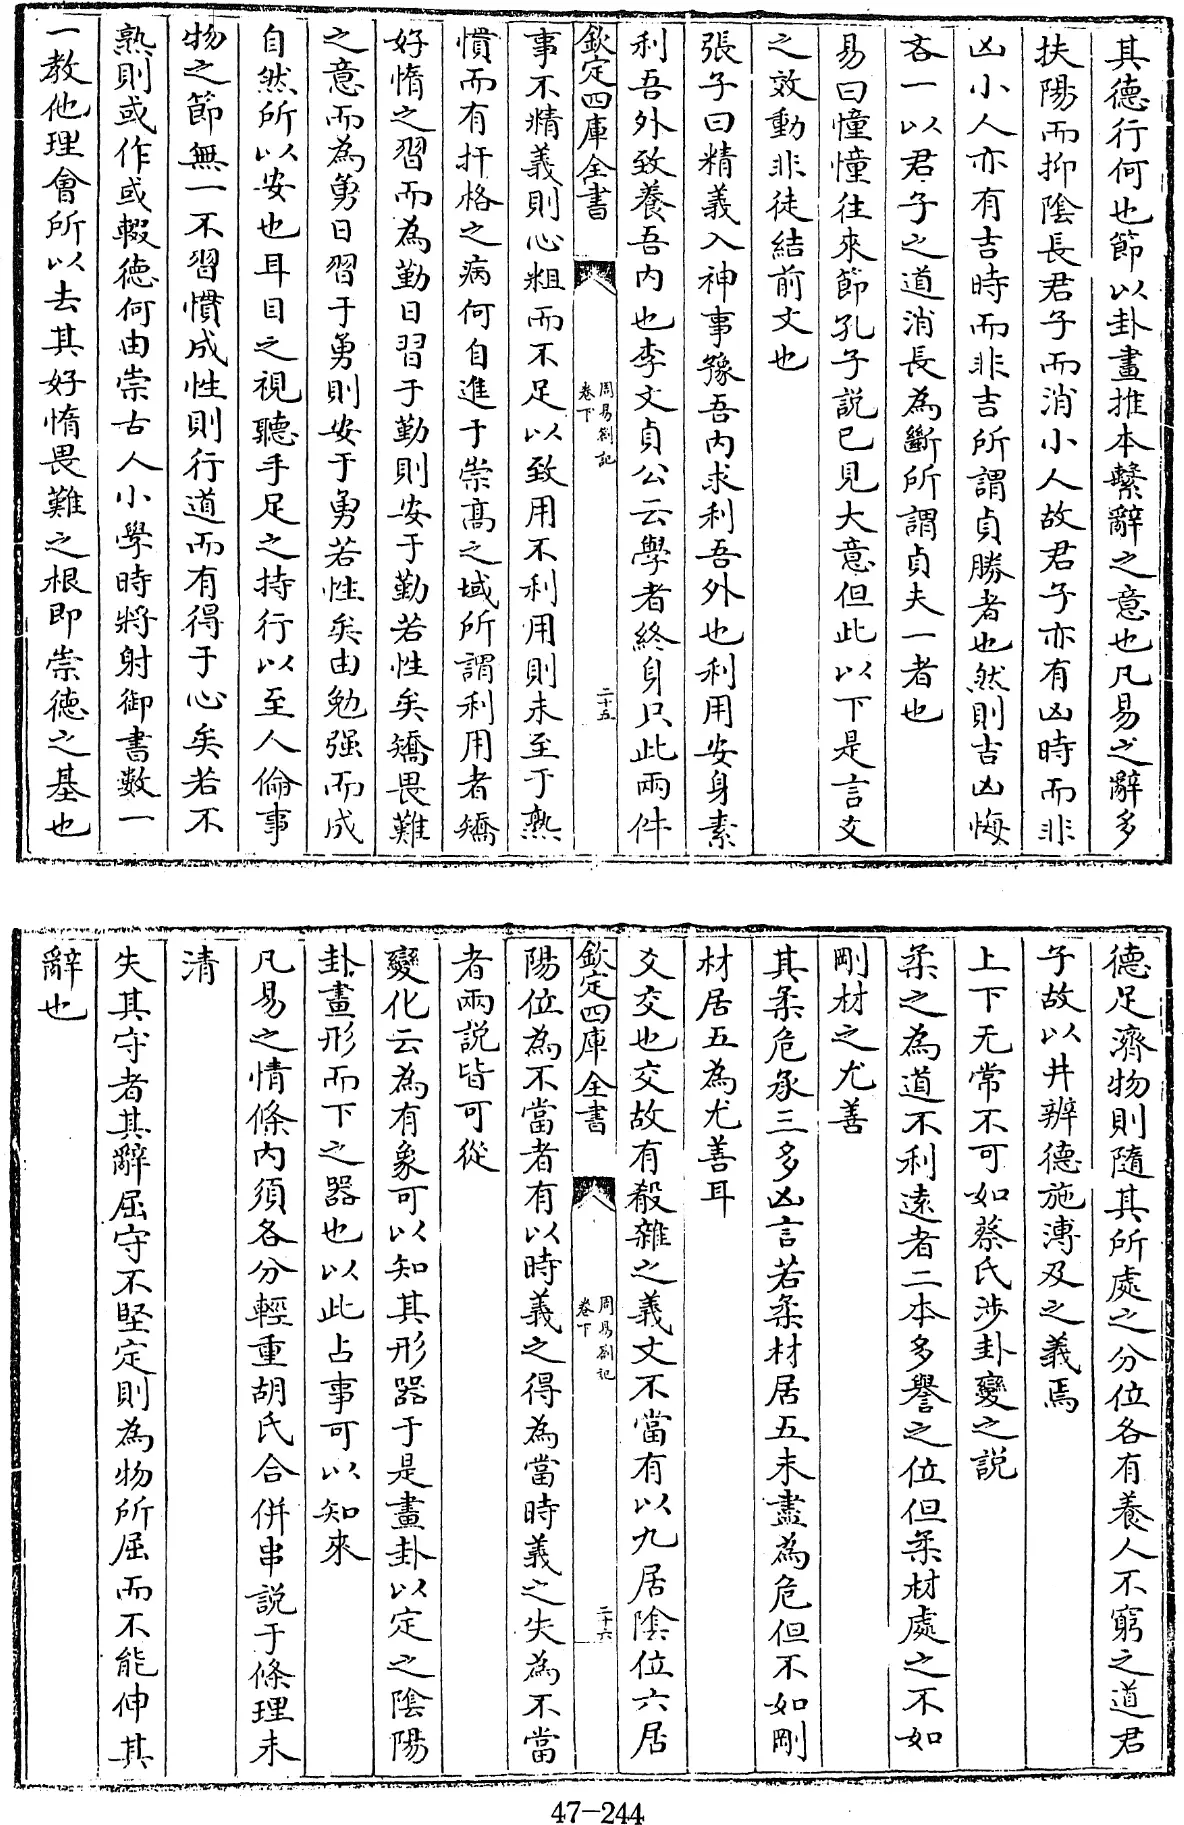 其德行何也節以卦畫推本繫辭之意也凡易之辭多
扶陽而抑陰長君子而消小人故君子亦有凶時而非
凶小人亦有吉時而非吉所謂貞勝者也然則吉凶悔
吝一以君子之道消長為斷所謂貞夫一者也
易曰憧憧往來節孔子説已見大意但此以下是言文
之效動非徒結前文也
張子曰精義入神事豫吾内求利吾外也利用安身素
利吾外致養吾内也李文貞公云學者終身只此兩件
欽定四庫全書
周易劄記
卷下
二十五
事不精義則心粗而不足以致用不利用則未至于熟
慣而有扞格之病何自進于崇高之域所謂利用者矯
好惰之習而為勤日習于勤則安于勤若性矣矯畏難
之意而為勇日習于勇則安于勇若性矣由勉强而成
自然所以安也耳目之視聽手足之持行以至人倫事
物之節無一不習慣成性則行道而有得于心矣若不
熟則或作或輟德何由崇古人小學時將射御書數一
一教他理會所以去其好惰畏難之根即崇德之基也
德足濟物則隨其所處之分位各有養人不窮之道君
子故以井辨德施溥及之義焉
上下无常不可如蔡氏涉卦變之説
柔之為道不利遠者二本多譽之位但柔材處之不如
剛材之尤善
其柔危承三多凶言若柔材居五未盡為危但不如剛
材居五為尤善耳
爻交也交故有殽雜之義文不當有以九居陰位六居
欽定四庫全書
周易劄記
卷下
二十六
陽位為不當者有以時義之得為當時義之失為不當
者兩説皆可從
變化云為有象可以知其形器于是畫卦以定之陰陽
卦畫形而下之器也以此占事可以知來
凡易之情條内須各分輕重胡氏合併串説于條理未
清
失其守者其辭屈守不堅定則為物所屈而不能伸其
辭也
47-244